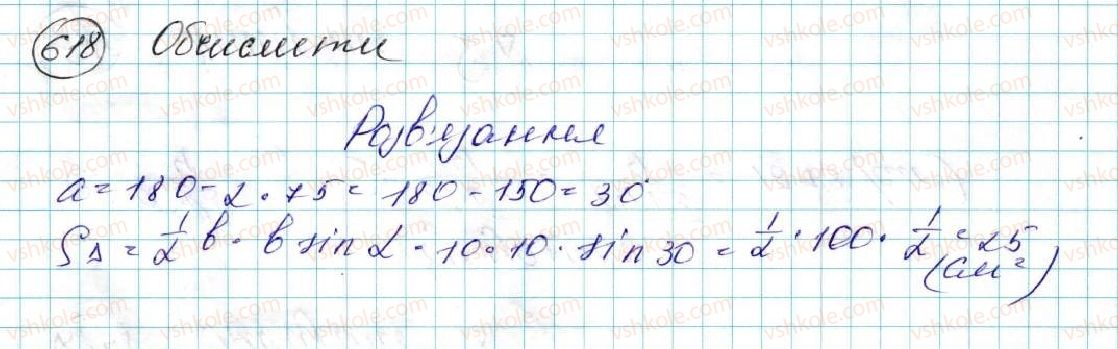 618 Обчислити
Розв'язання
a = 180 - 2 · 75 = 180 - 150 = 30°
S∆ = 1/2 b · b sin α = 10 · 10 · sin 30 = 1/2 · 100 · 1/2 = 25
(см²)